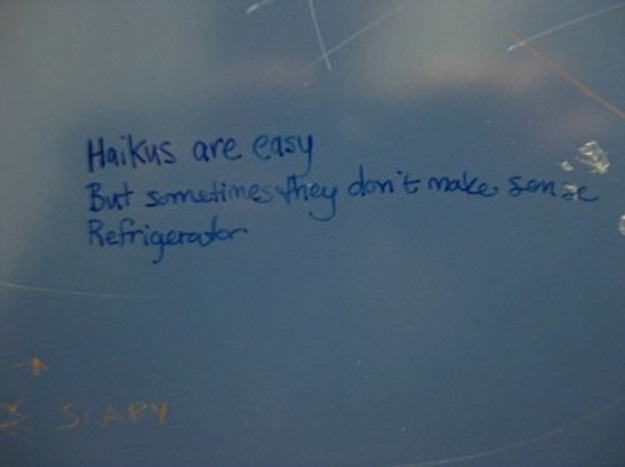 Haikus are easy
But sometimes they don't make sense
Refrigerator
SCARY